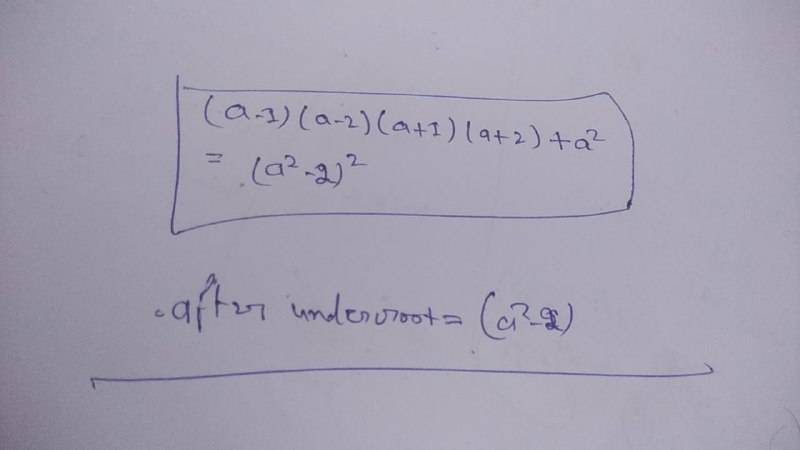 (a-1)(a-2)(a+1)(a+2)+a²
= (a²-2)²
. after underroot = (a²-2)